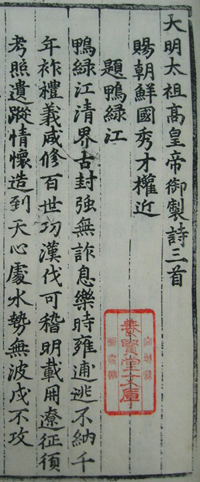 大明太祖高皇帝御製詩三首
賜朝鮮國秀才權近
題鴨綠江
鴨綠江清界古封強無詐息樂時雍逋逃不納千
年祚禮義咸修百世功漢伐可稽明載冊遼征須
考照遺蹤情懷造到天心處水勢無波戍不攻
養賢堂文庫